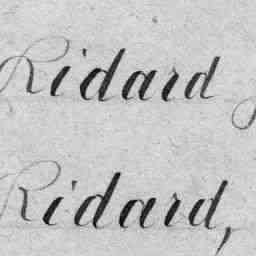 Ridard
Ridard,